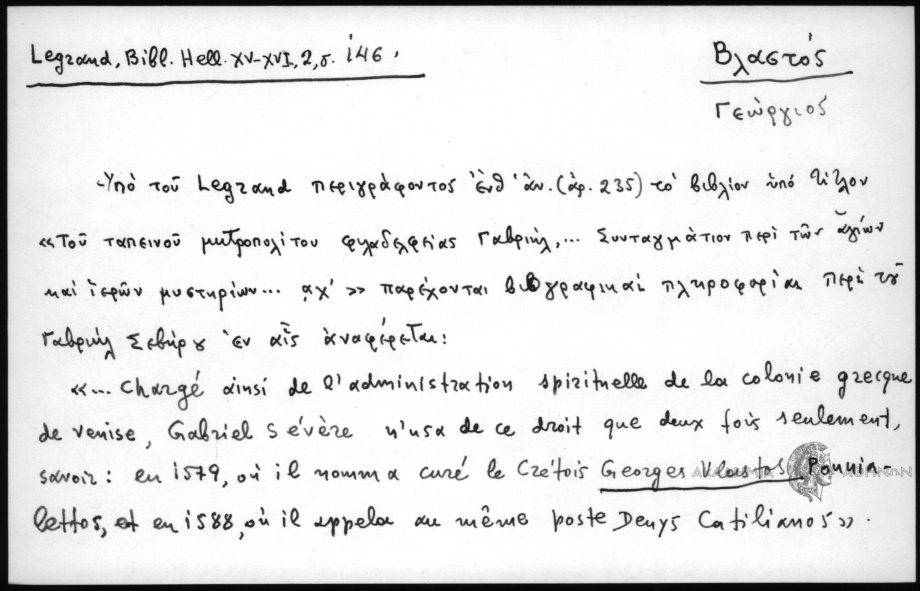 Legrand, Bibl. Hell. XV-XVI, 2, σ. 146.
Βλαστός
Γεώργιος
Ὑπὸ τοῦ Legrand περιγράφοντος ἐνθ' ἀν. (ἀρ. 235) τὸ βιβλίον ὑπὸ τίτλον
«Τοῦ ταπεινοῦ μητροπολίτου φιλαδελφείας Γαβριήλ,... Συνταγμάτιον περὶ τῶν ἁγίων
καὶ ἱερῶν μυστηρίων... ͵αχ' » παρέχονται βιογραφικαὶ πληροφορίαι περὶ τοῦ
Γαβριὴλ Σεβήρου ἐν αἷς ἀναφέρεται:
«... Chargé ainsi de l'administration spirituelle de la colonie grecque
de Venise, Gabriel Sévère n'usa de ce droit que deux fois seulement,
savoir: en 1579, où il nomma curé le Crétois Georges Vlastos Pounia-
lettos, et en 1588, où il appela au même poste Denys Catilianos».
ΑΚΑΔΗΜΙΑ ΑΘΗΝΩΝ